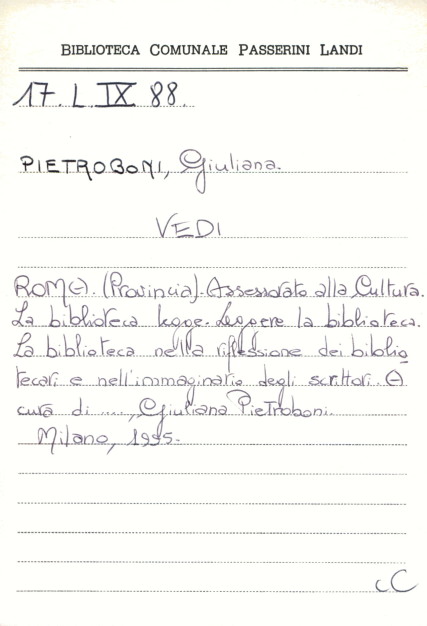 BIBLIOTECA COMUNALE PASSERINI LANDI
17. L IX 88.
PIETROBONI, Giuliana.
VEDI
ROMA. (Provincia). Assessorato alla Cultura.
La biblioteca legge. Leggere la biblioteca.
La biblioteca nella riflessione dei biblio
tecari e nell'immaginario degli scrittori. A
cura di ...., Giuliana Pietroboni.
Milano, 1995.
cC